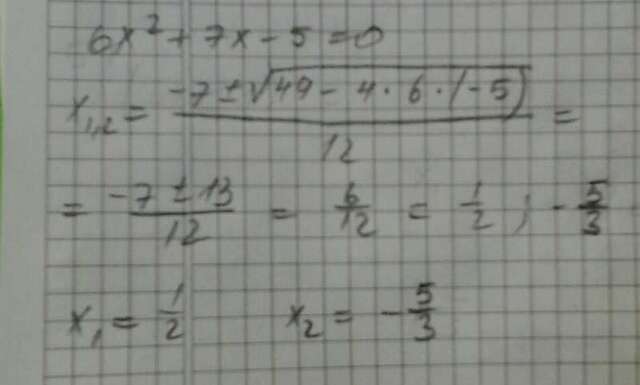 6x² + 7x - 5 = 0
x₁,₂ = (-7 ± √(49 - 4 · 6 · (-5)))/12 =
= (-7 ± 13)/12 = 6/12 = 1/2 ; - 5/3
x₁ = 1/2 x₂ = - 5/3